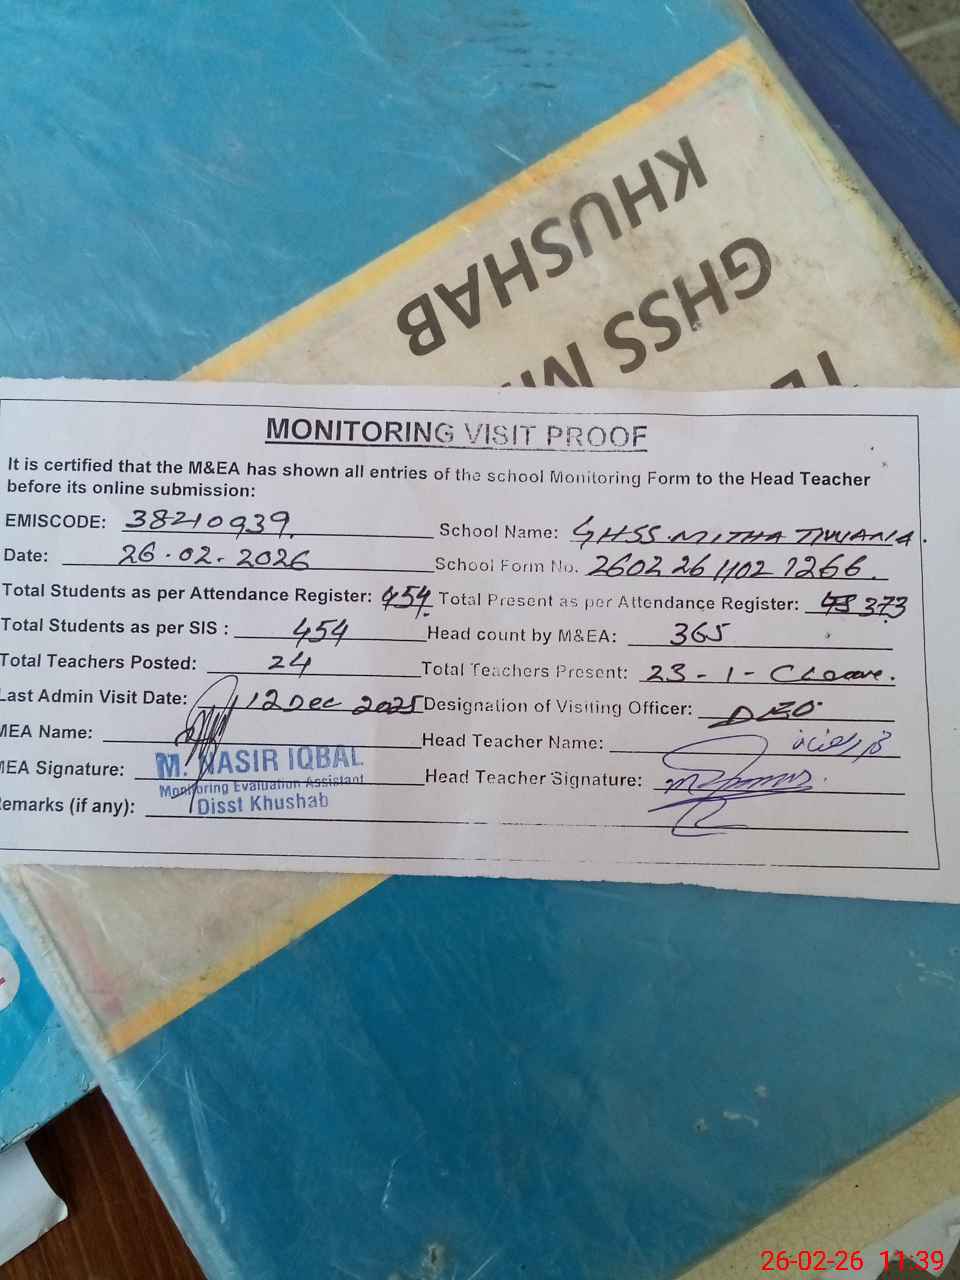 KHUSHAB
GHSS
MONITORING VISIT PROOF
It is certified that the M&EA has shown all entries of the school Monitoring Form to the Head Teacher
before its online submission:
EMISCODE: 38210939. School Name: GHSS. MITHA TIWANA.
Date: 26.02.2026 School Form No. 260226 1102 1266.
Total Students as per Attendance Register: 454 Total Present as per Attendance Register: 373
Total Students as per SIS : 454 Head count by M&EA: 365
Total Teachers Posted: 24 Total Teachers Present: 23 - 1 -
Last Admin Visit Date: 12 Dec 2025 Designation of Visiting Officer: DEO
MEA Name: Head Teacher Name:
MEA Signature: M. NASIR IQBAL Head Teacher Signature:
Monitoring Evaluation Assistant
Remarks (if any): Disst Khushab
26-02-26 11:39